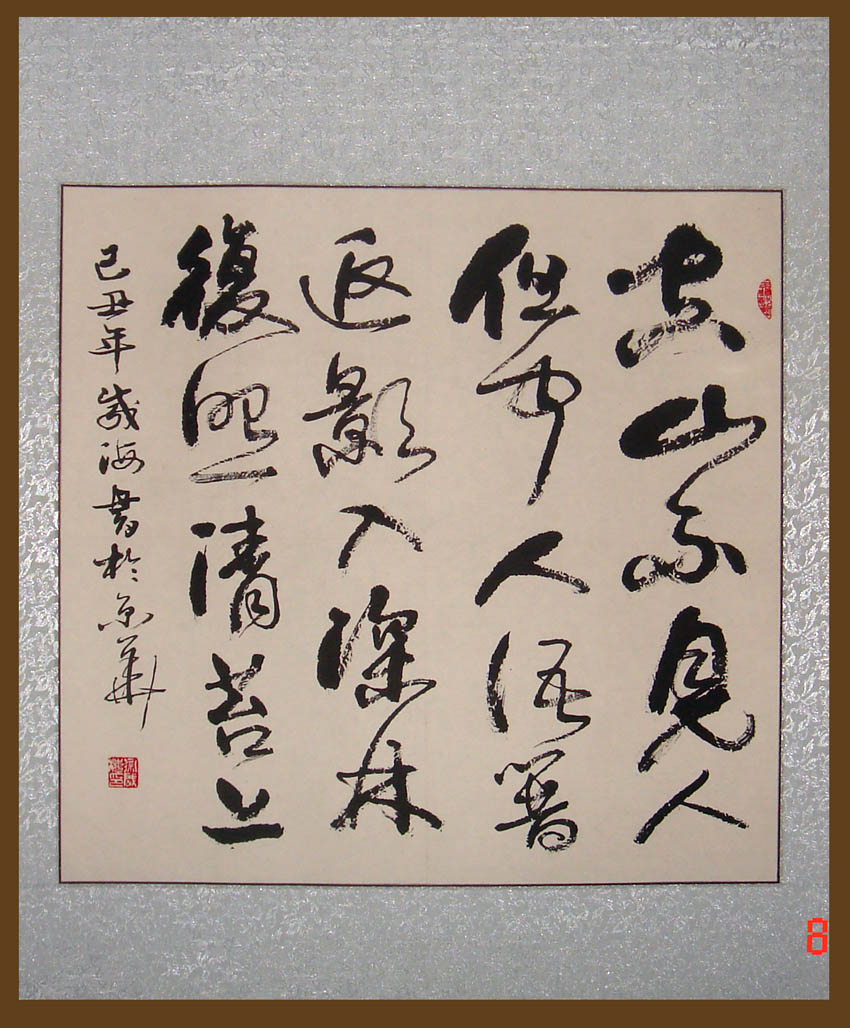 空山不見人
但聞人語響
返影入深林
復照清苔上
己丑年歲海書於京華
8